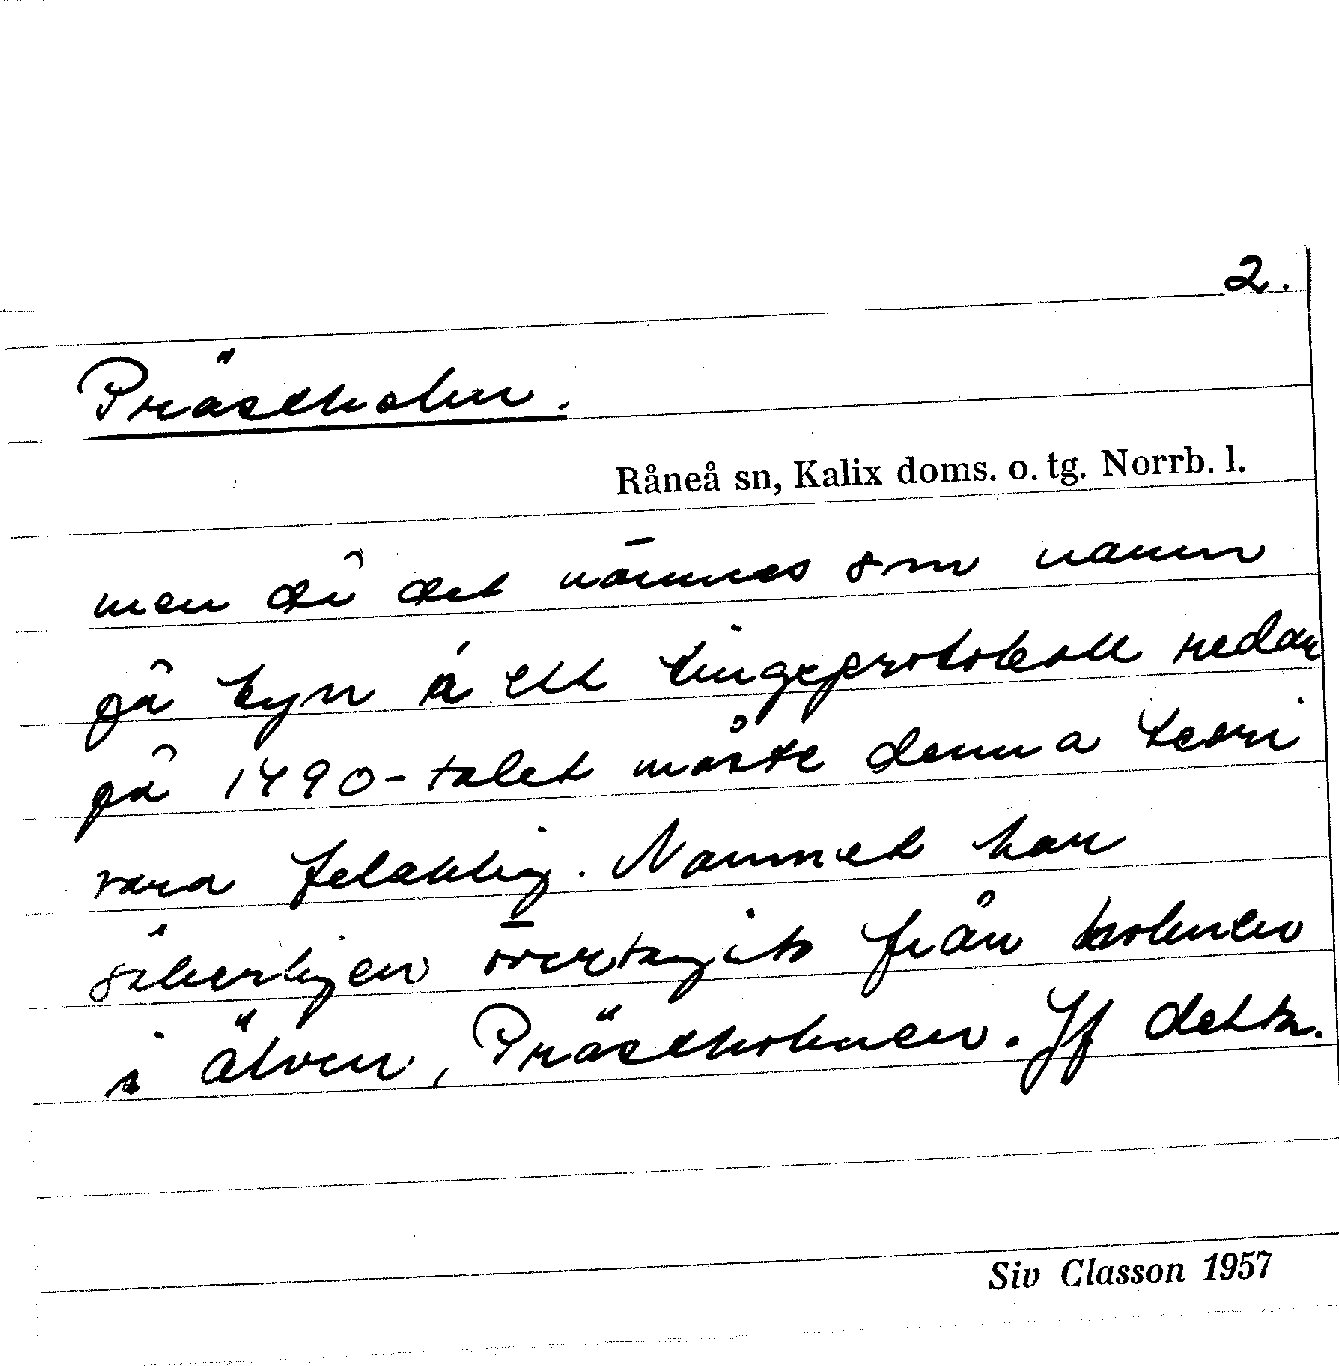 2.
Prästholm.
Råneå sn, Kalix doms. o. tg. Norrb. l.
men då det nämnes som namn
på byn å ett tingsprotokoll redan
på 1490-talet måste denna teori
vara felaktig. Namnet har
säkerligen övertagits från holmen
i älven, Prästholmen. Jf detta.
Siv Classon 1957